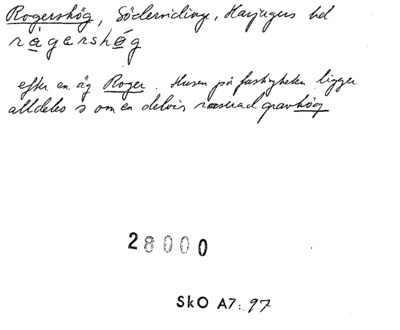 Rogershög, Södervidinge, Harjagers hd
rågarshög
efter en äg Roger. Husen på fastigheten ligger
alldeles s om en delvis raserad gravhög
28000
SkO A7: 97